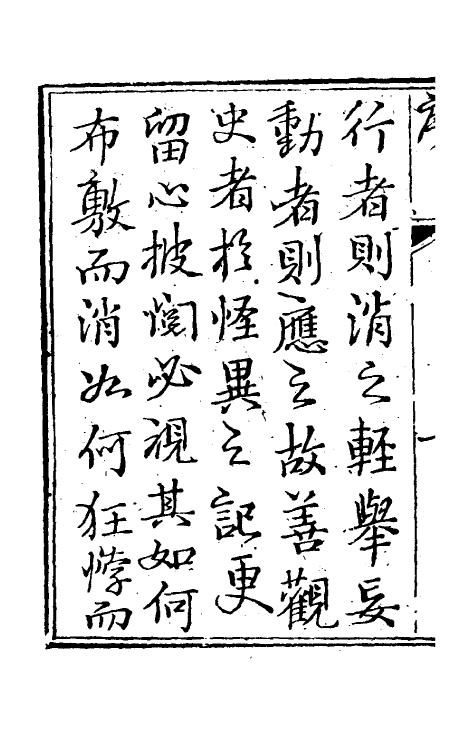 行者則消之輕舉妄
動者則應之故善觀
史者於怪異之記更
留心披閱必視其如何
布敷而消如何狂悖而